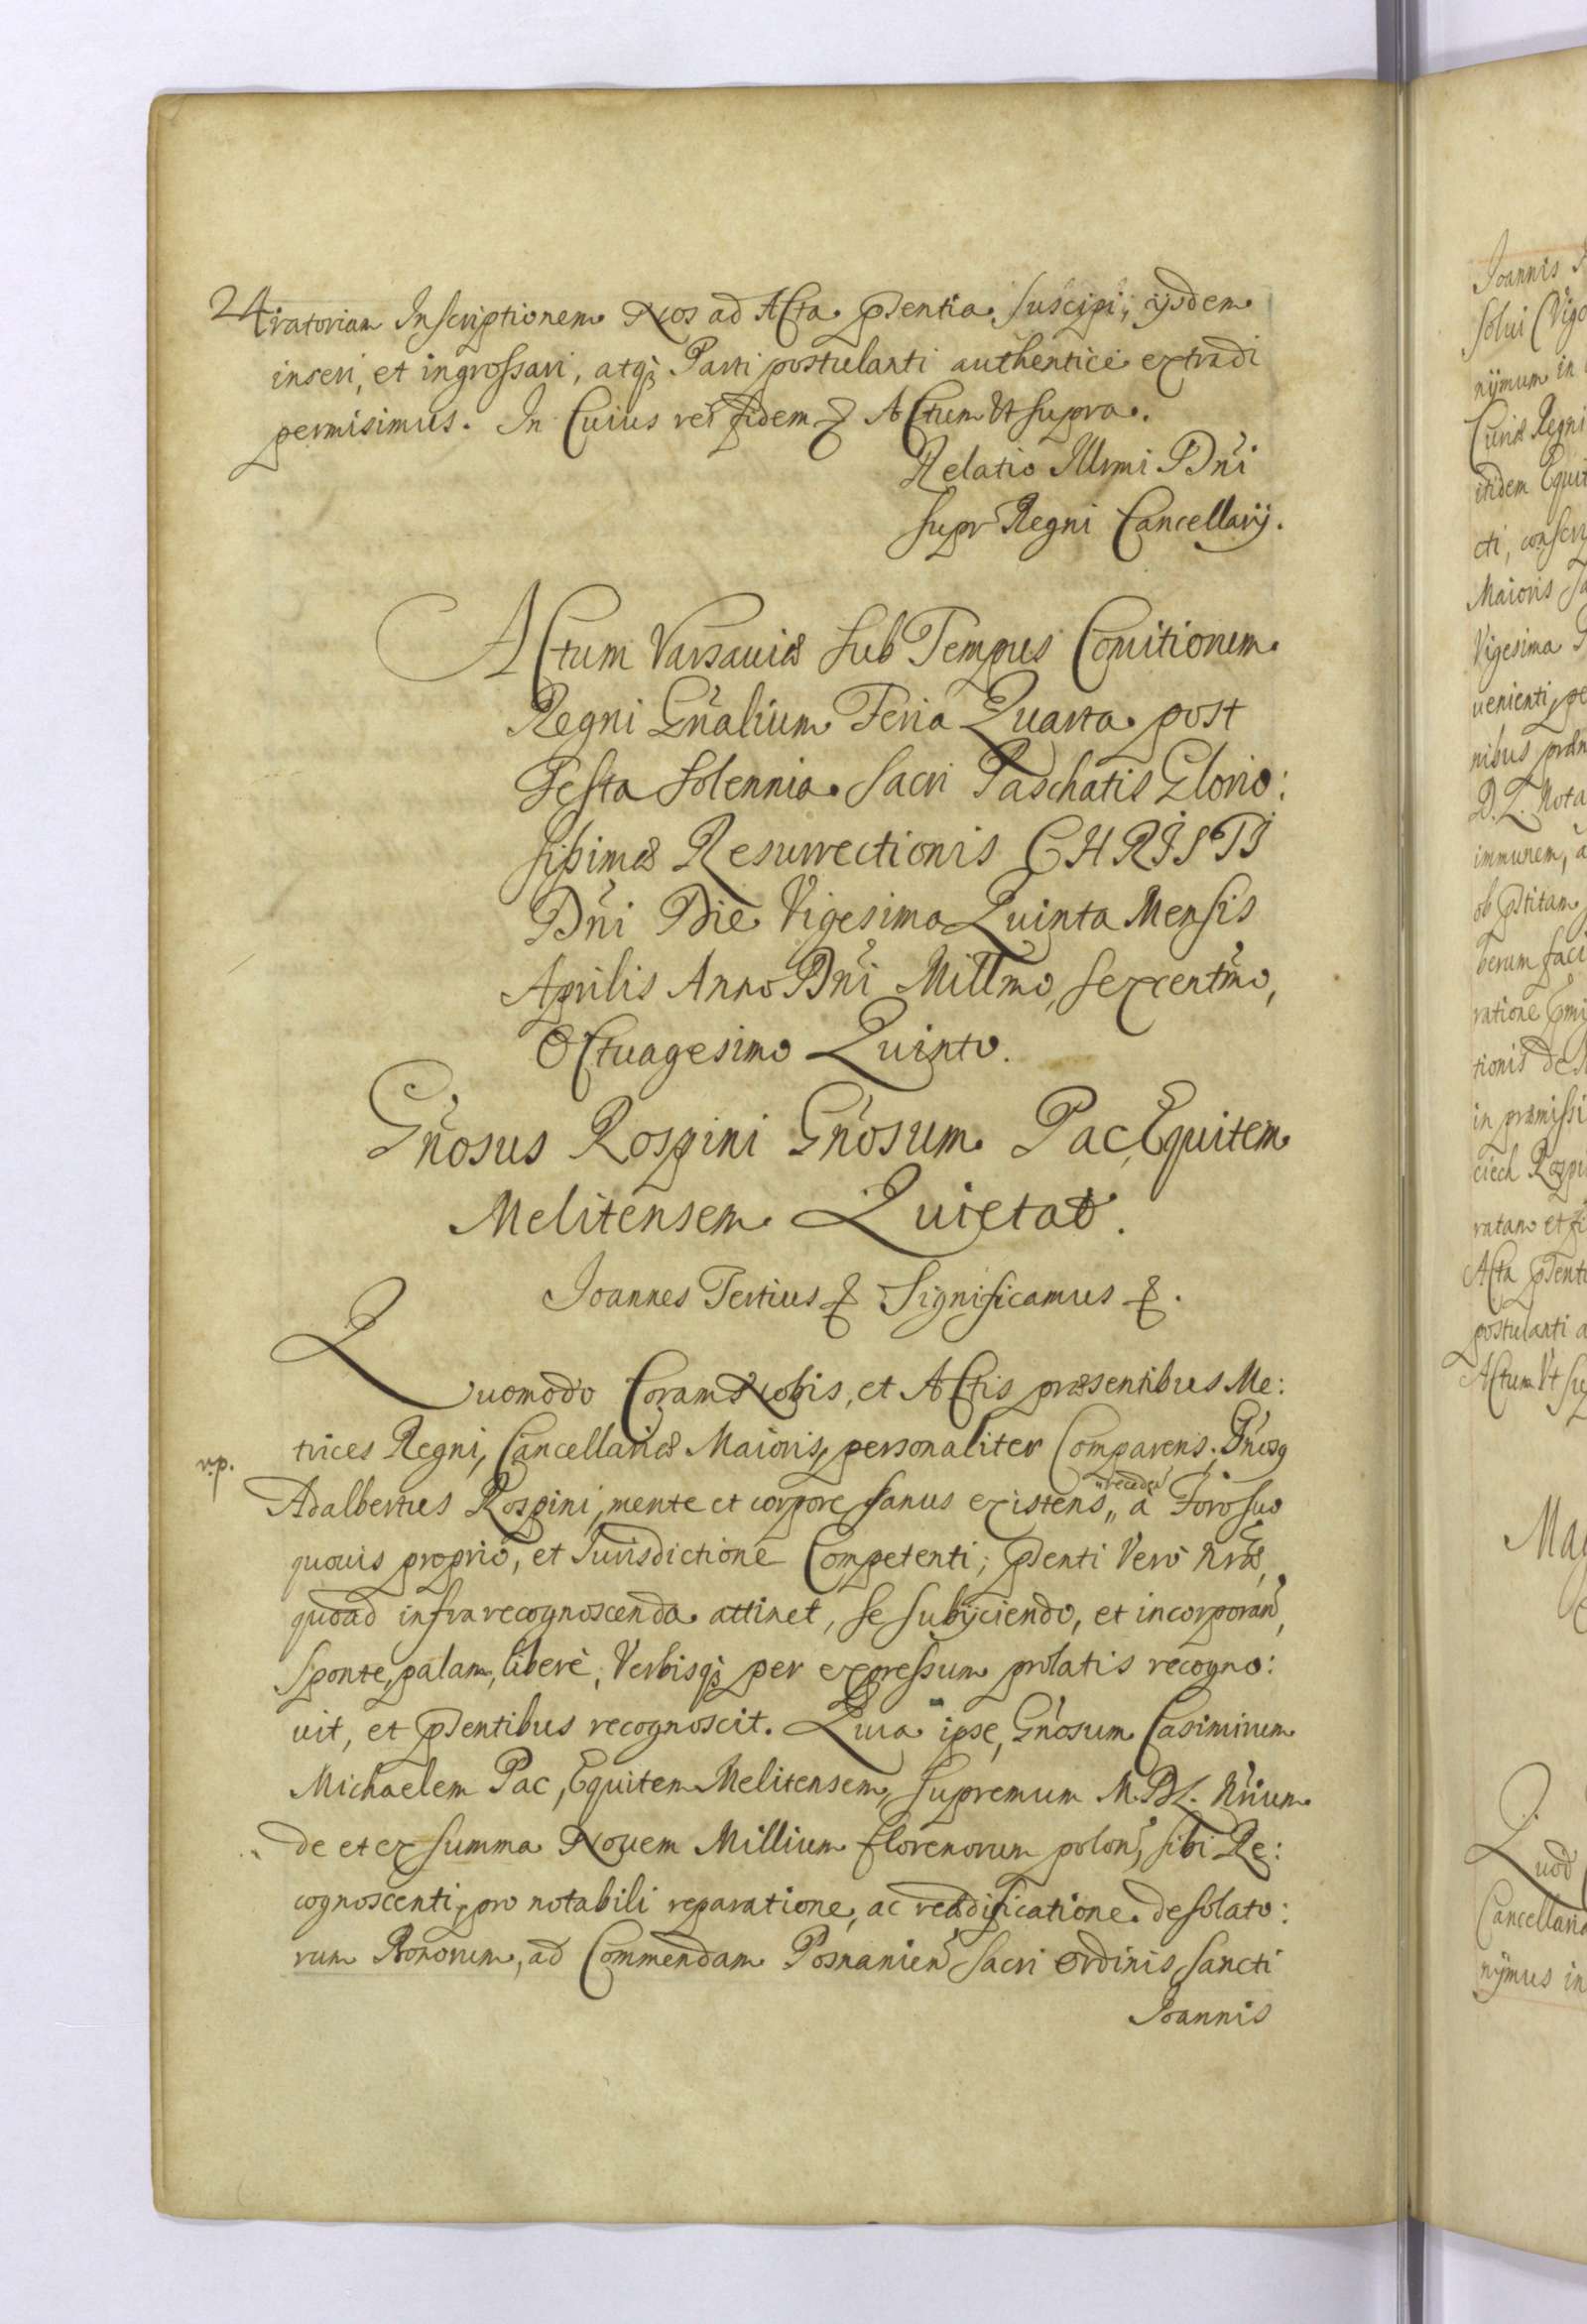 ratoriam Inscriptionem Nos ad Acta pñtia suscipi, ijsdem
inseri, et ingrossari, atq; Parti postulanti authenticè extradi
permisimus. In Cuius rei fidem &. Actum Ut supra.
Relatio Illmi Dñi
supr Regni Cancellarij.
Actum Varsaviæ sub Tempus Comitiorum
Regni Gñalium Feria Quarta post
Festa solennia Sacri Paschatis Glorio:
sissimæ Resurrectionis CHRISTI
Dñi Die Vigesima Quinta Mensis
Aprilis Anno Dñi Millmo, sexcentmo,
Octuagesimo Quinto.
Gñosus Rospini Gñosum Pac, Equitem
Melitensem Quietat.
Joannes Tertius & Significamus &.
Quomodo Coram Nobis, et Actis præsentibus Me:
trices Regni, Cancellariæ Maioris, personaliter Comparens, Gñosq
r.p.
Adalbertus Rospini, mente et corpore sanus existens, "recedẽ à Foro suo
quovis proprio, et Jurisdictione Competenti; pñti Vero nræ,
quoad infra recognoscenda attinet, se subijciendo, et incorporañ,
sponte, palam, liberè, Verbisq; per expressum prolatis recogno:
vit, et pñtibus recognoscit. Quia ipse, Gñosum Casimirum
Michaelem Pac, Equitem Melitensem, supremum M.D.L. Nrium
de et ex summa Novem Millium florenorum polon, sibi Re:
cognoscenti, pro notabili reparatione, ac reædificatione desolato:
rum Bonorum, ad Commendam Posnanien Sacri Ordinis Sancti
Joannis
Joannis
solui
nijmum in
Curiæ Regni
itidem Equit
cti, conscri
Maioris
Vigesima
uenienti, pe
nibus
D. L. Nota
immunem, a
berum faci
ratione
tionis de
in præmissi
ratam et
Acta
postulanti a
Actum Ut su
Quod
Cancellariæ
nijmus in